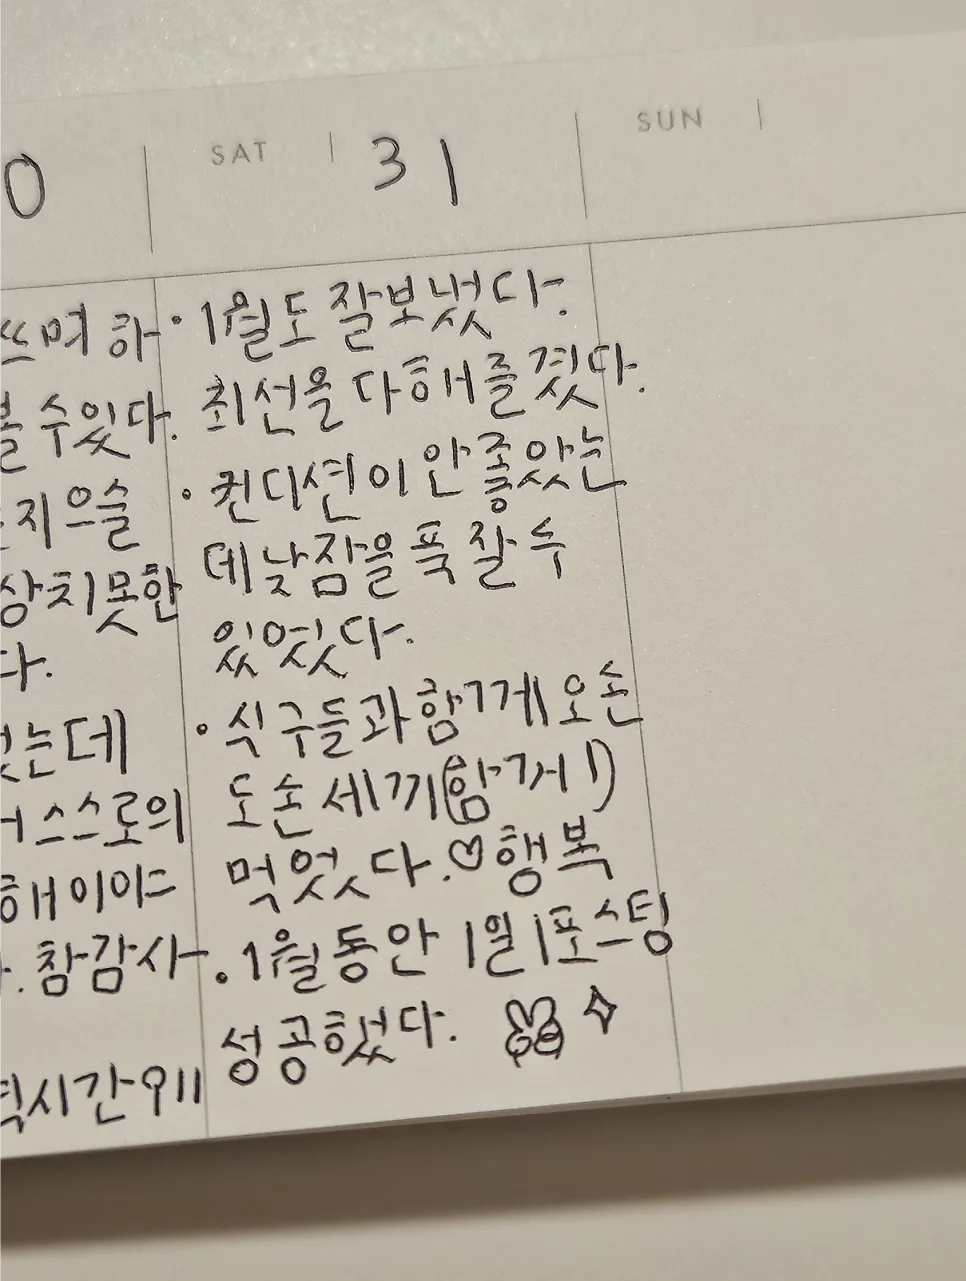 SAT 31
SUN
0
쓰며 하
볼 수있다.
지으슬
상치못한
다.
는데
스스로의
해이야
. 참감사
시간에
• 1월도 잘보냈다.
최선을 다해즐겼다.
• 컨디션이 안좋았는
데낮잠을 푹 잘 수
있었다.
• 식구들과함께오손
도손 세끼(함께!)
먹었다.♡행복
• 1월동안 1일1포스팅
성공했다.